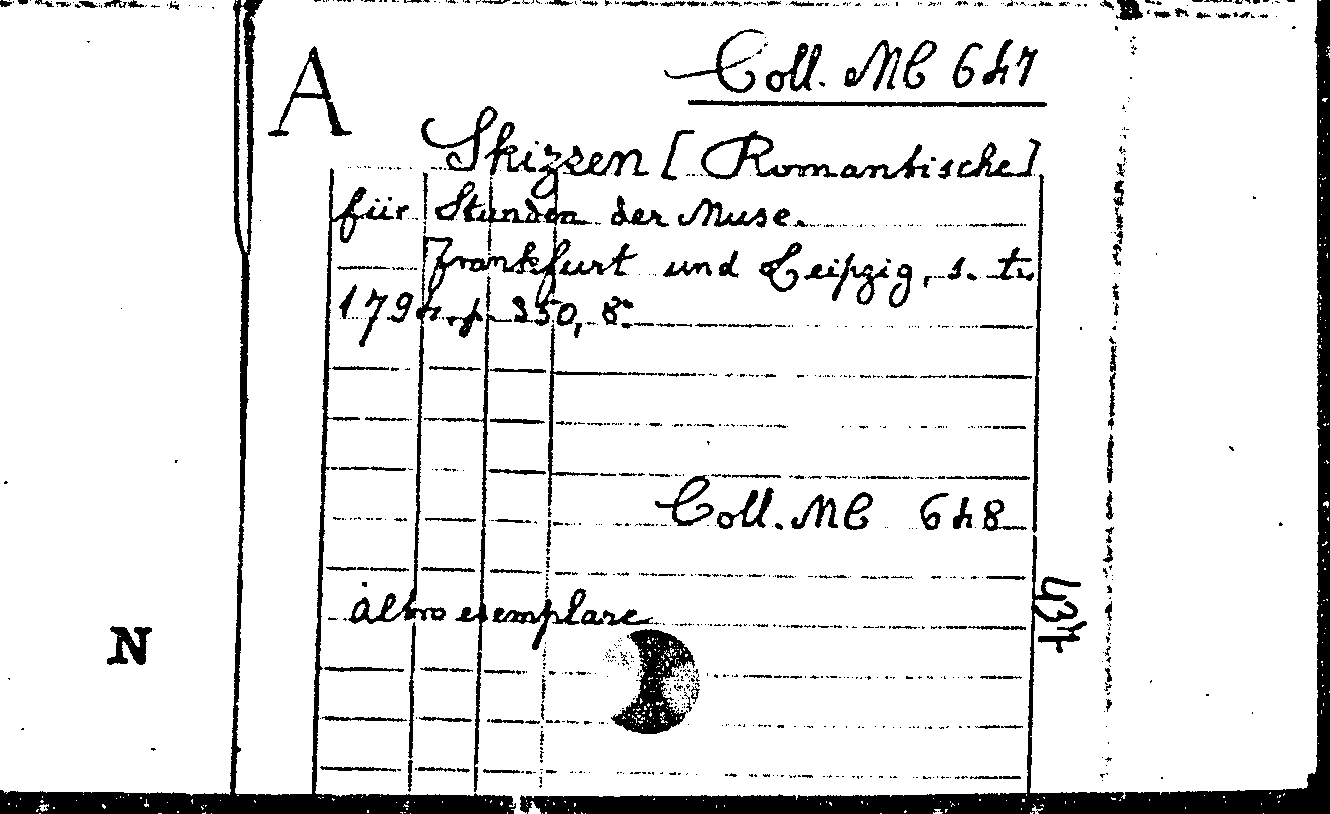 A
Coll. MC 647
Skizzen [Romantische]
für Stunden der Muse.
Frankfurt und Leipzig, s. t.
1794. p. 350, 8°
Coll. MC 648
altro esemplare
437
N